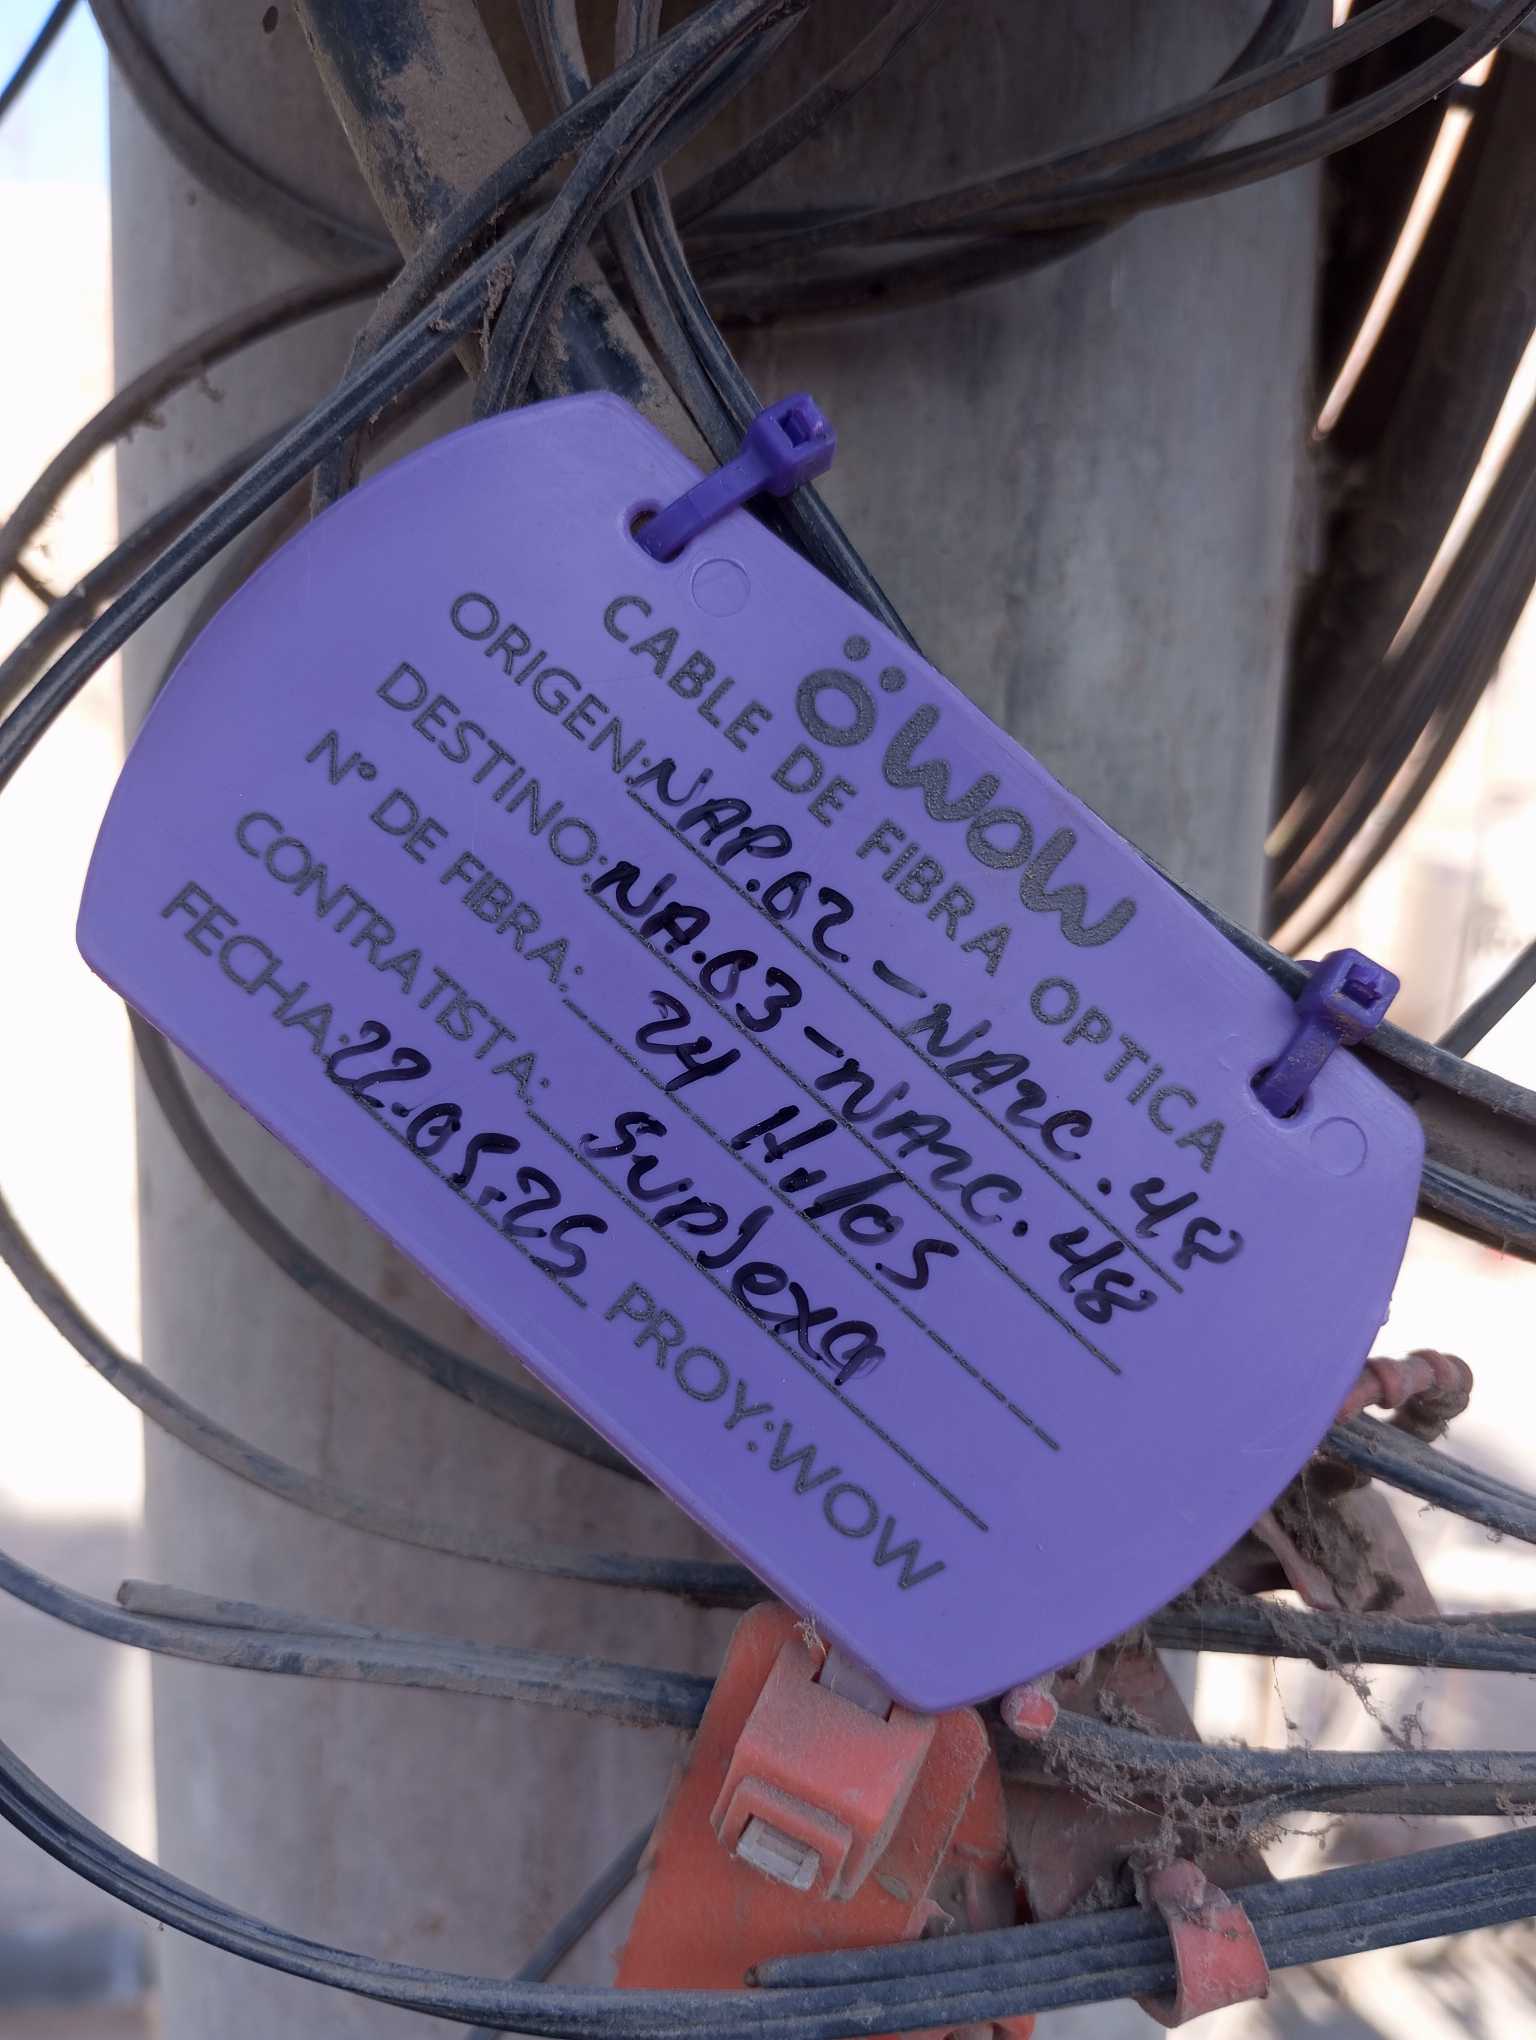 wow
CABLE DE FIBRA OPTICA
ORIGEN: NAP.02 - NAZC.48
DESTINO: NA.03 - NAZC.48
N° DE FIBRA: 24 Hilos
CONTRATISTA: Suplexa
FECHA: 22.05.25 PROY: WOW